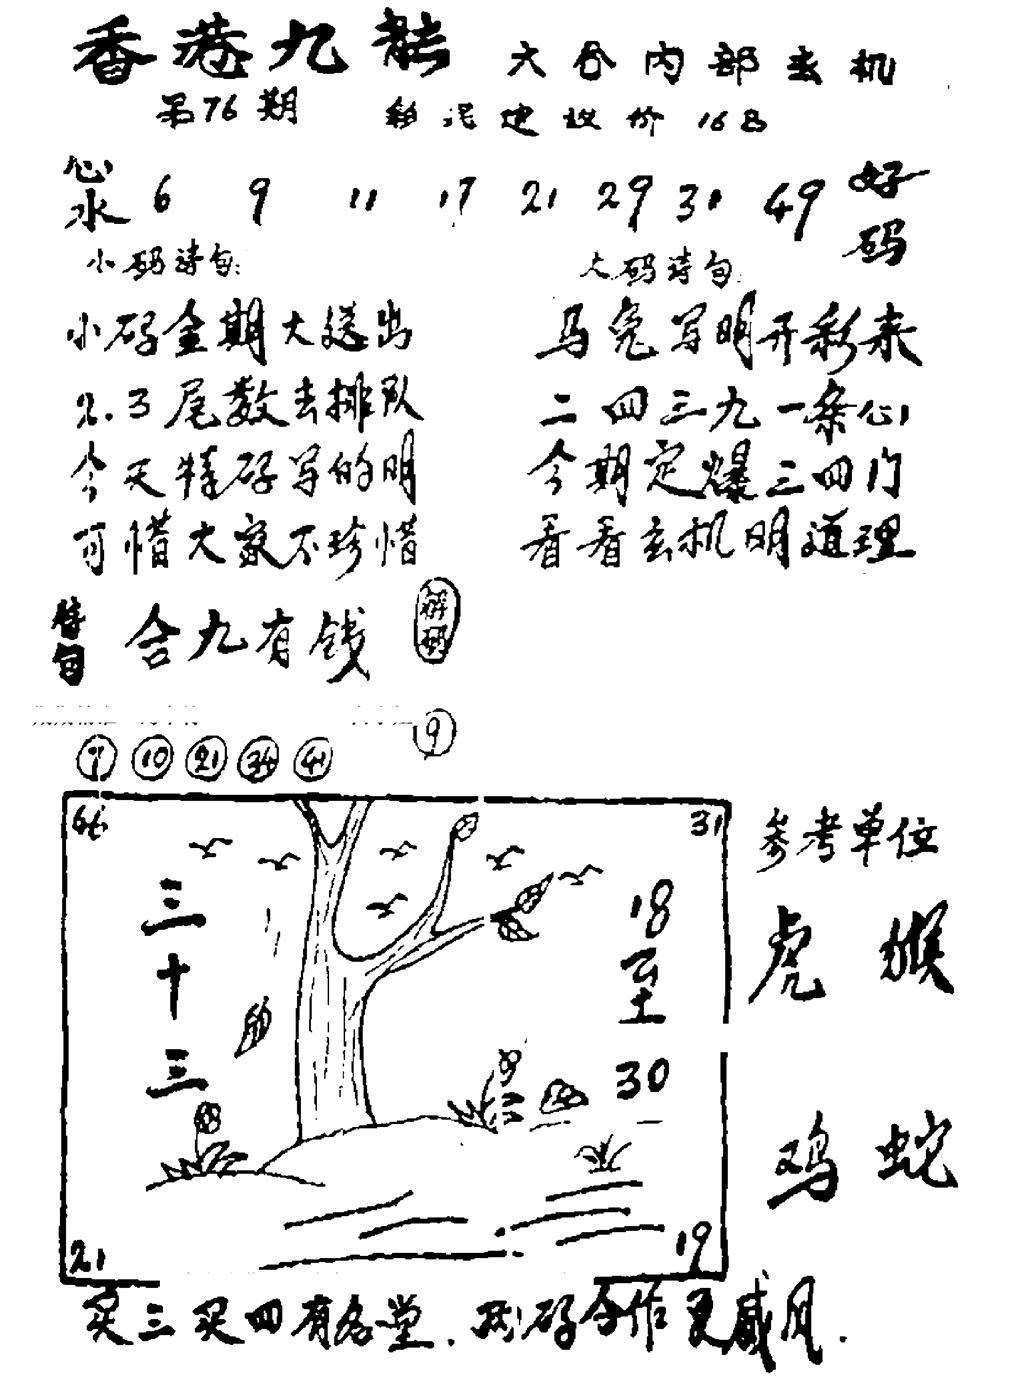 香港九龙 六合内部玄机
第76期 建议价 168
心水 6 9 11 17 21 29 31 49 好码
小码诗句: 大码诗句:
小码金期大送出 马兔写明开彩来
2.3尾数去排队 二四三九一条心
今天特码写的明 今期定爆三四门
可惜大家不珍惜 看看玄机明道理
特句 合九有钱 解码
9
9 10 21 34 41
46 31 参考单位
三十三 18至30
虎 猴
鸡 蛇
21 19
买三买四有名堂. 码合作更威风.